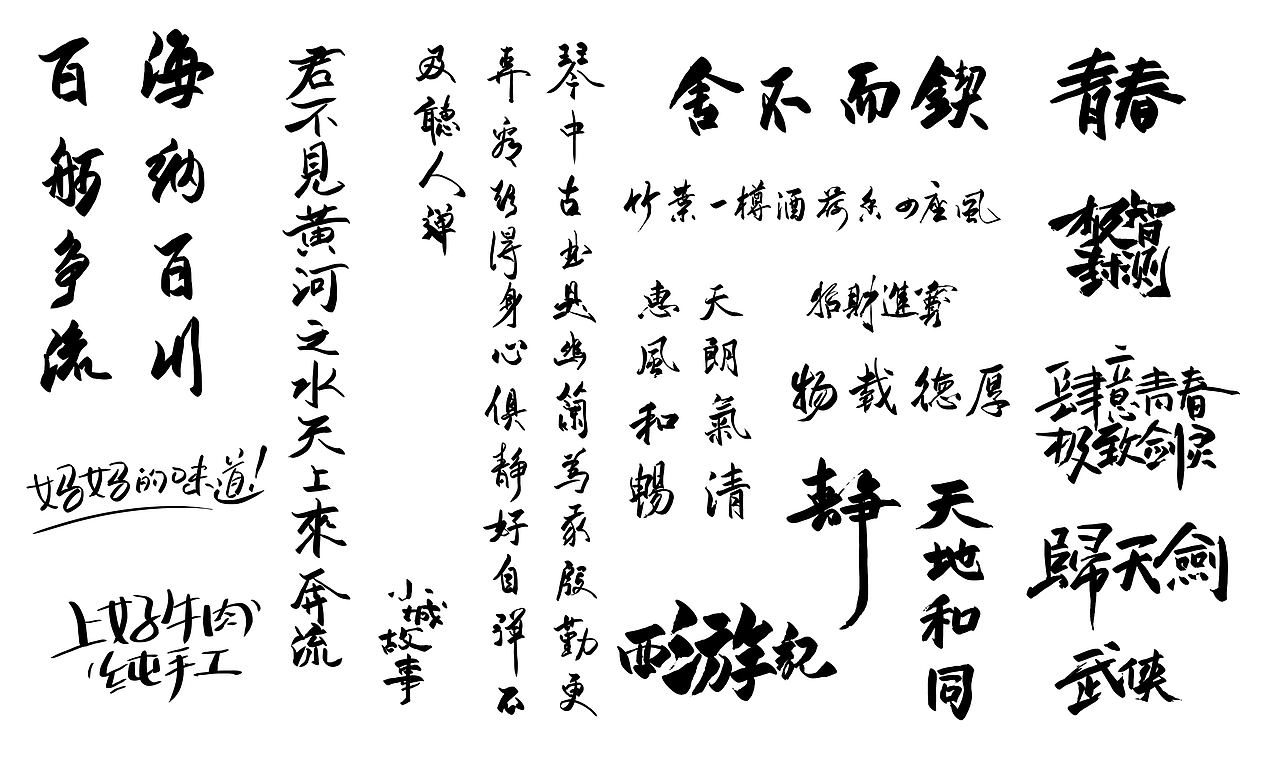 海纳百川
百舸争流
妈妈的味道!
上好牛肉
纯手工
君不見黃河之水天上來奔流
琴中古曲是幽蘭為我殷勤更
弄看欲得身心俱靜好自彈不
及聽人彈
小城
故事
鍥而不舍
竹葉一樽酒荷香四座風
招財進寶
天朗氣清
惠風和暢
厚德載物
靜
天地和同
西游記
青春
极智
封测
肆意青春
极致剑灵
歸天劍
武侠